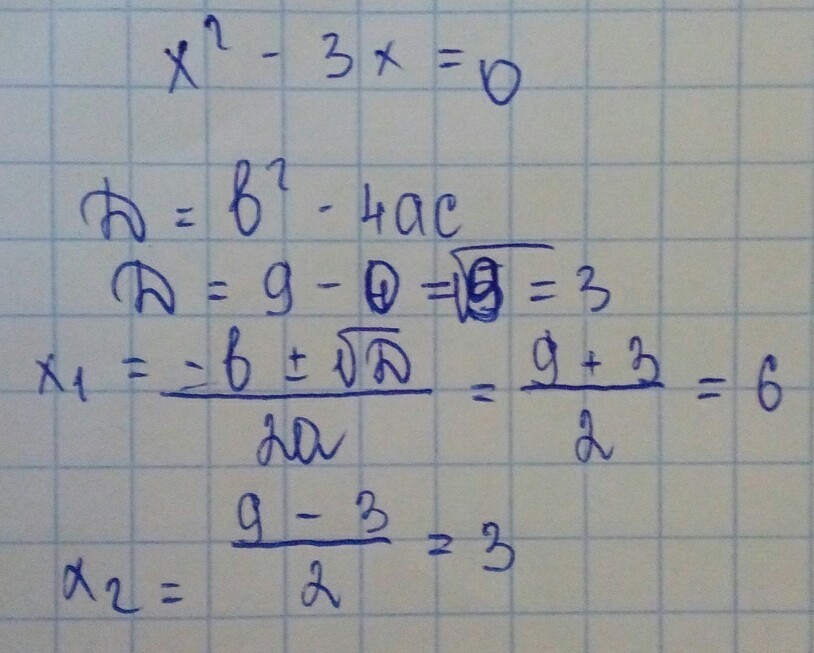 x² - 3x = 0
D = b² - 4ac
D = 9 - 0 = √9 = 3
x₁ = (-b ± √D)/(2a) = (9 + 3)/2 = 6
x₂ = (9 - 3)/2 = 3